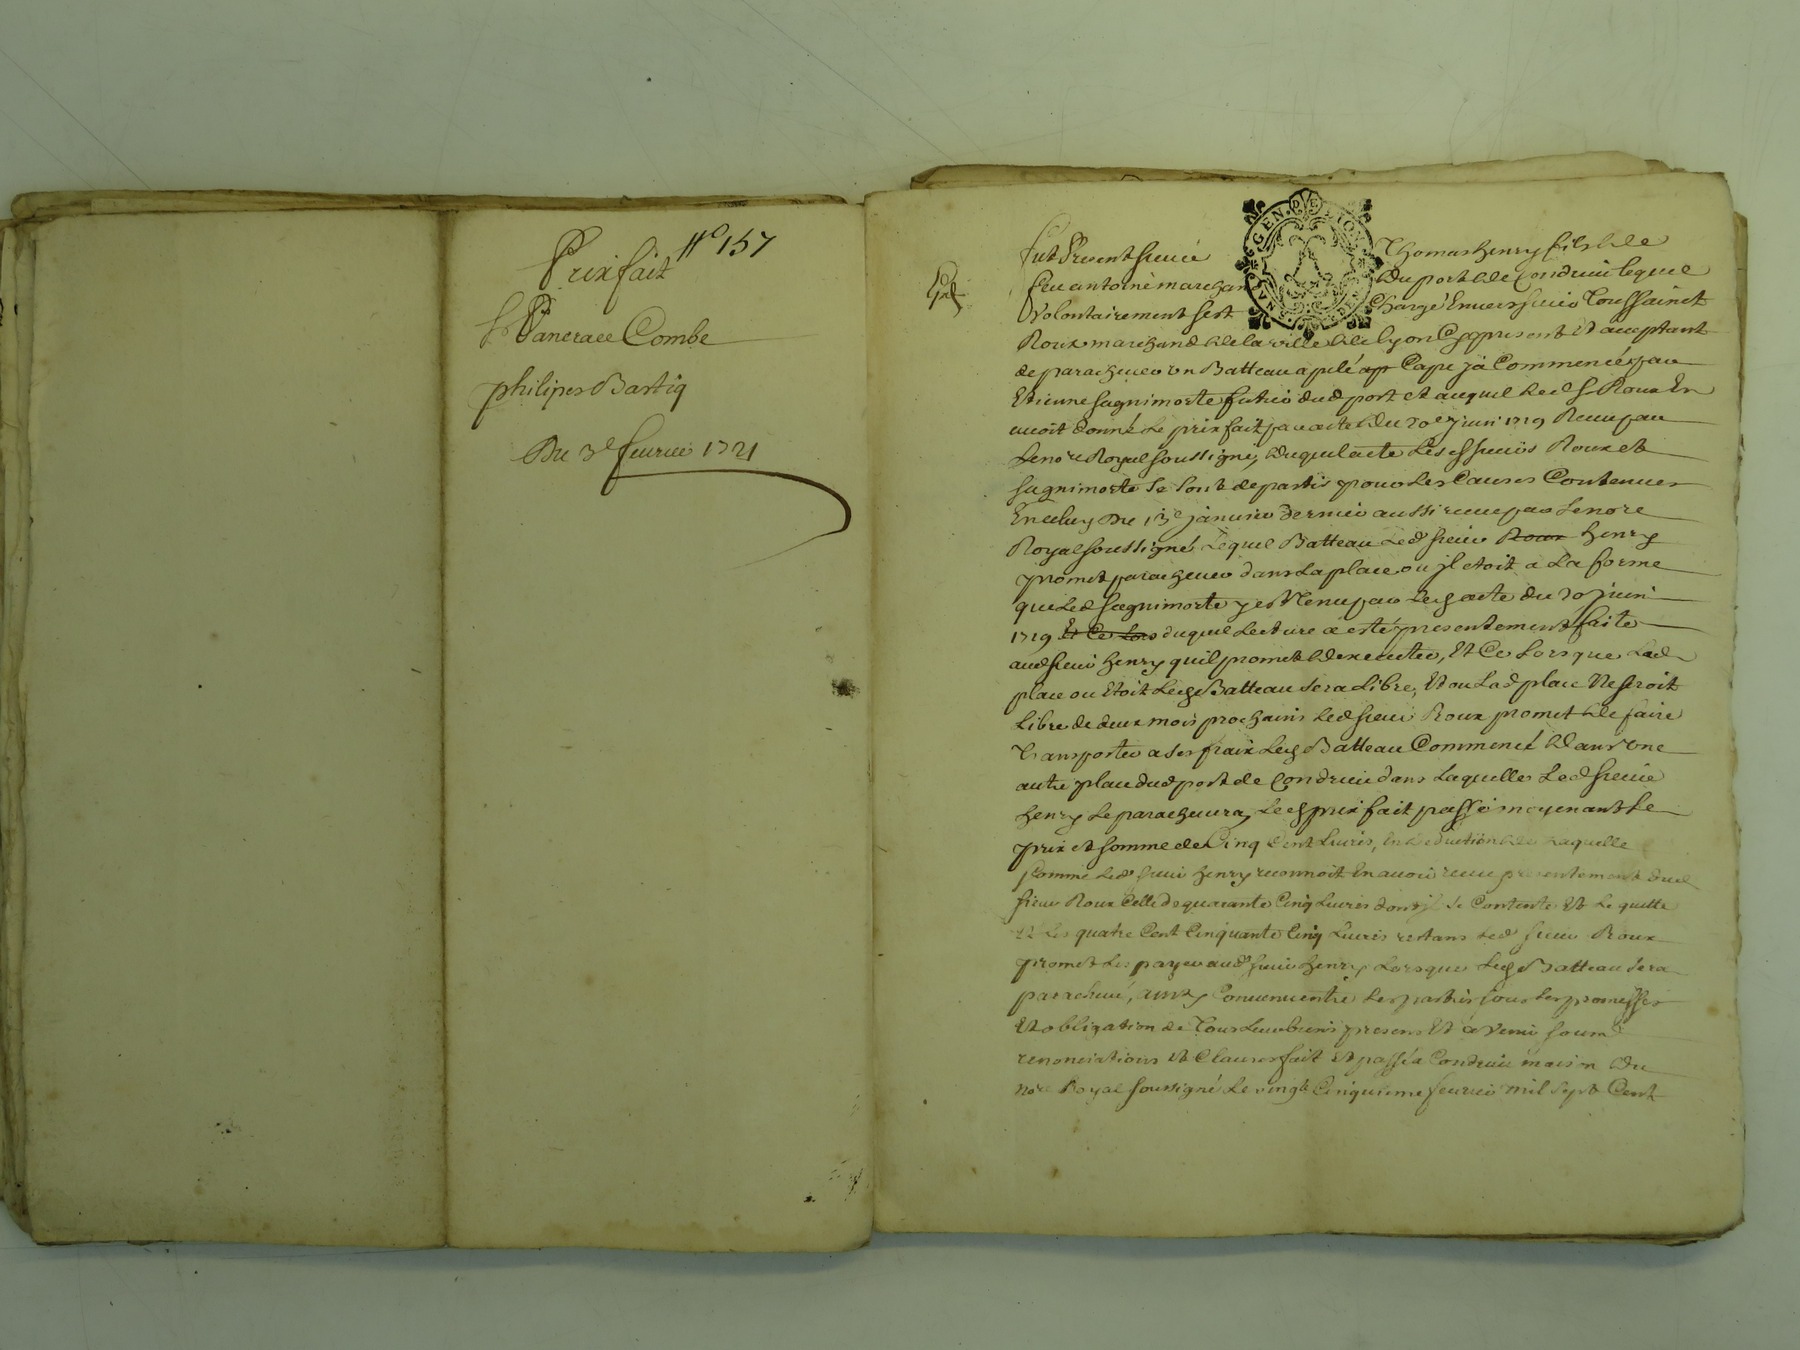 N° 157
Prix fait
Sr Pancrace Combe
philipes Bastiq
Du 3e feurier 1721
fut Present sieur Thomas henry fils de
feu antoine marchan du port de Condrieu lequel
Volontairement s'est Chargé Enuers sieur Toussainct
Roux marchand de la ville de lyon Cy present et acceptant
de paracheuer vn Batteau apelé Cape ja Commencé par
Etienne sagnimorte futrier dud port et auquel led Sr Roux En
auoit donné le prix fait par acte du 20e juin 1719 Receu par
Le nore Royal soussigné, duquel acte Lesd sieurs Roux et
sagnimorte se sont departis pour les Causes Contenues
En celuy du 13e januier dernier aussi receu par le nore
Royal soussigné Lequel Batteau Led sieur Roux henry
promet paracheuer dans la place ou jl etoit a la forme
que led sagnimorte y est tenu par led acte du 20 juin
1719 Et Ce Lors duquel lecture a esté presentement faite
aud sieur henry quil promet d'executer, Et Ce Lors que lad
place ou Etoit led Batteau sera Libre, Et ou lad place ne seroit
Libre de deux mois prochains led sieur Roux promet de faire
transporter a ses fraix led Batteau Commencé dans vne
autre place dud port de Condrieu dans laquelle Led sieur
henry le paracheuera, led prix fait passé moyenant le
prix et somme de Cinq Cent Liures, en deduction de laquelle
somme led sieur henry reconnoit En auoir receu presentement dud
sieur Roux Celle de quarante Cinq Liures dont jl se Contente Et le quitte
Et les quatre Cent Cinquante Cinq Liures restans led sieur Roux
promet les payer aud sieur henry Lorsque led Batteau sera
paracheué, ainsy Conuenu entre les parties sous les promesses
Et obligation de Tous leurs biens presens Et a venir soum
renonciations et Clauses fait et passé a Condrieu maison du
nore Royal soussigné Le vingt Cinquieme feurier mil sept Cent